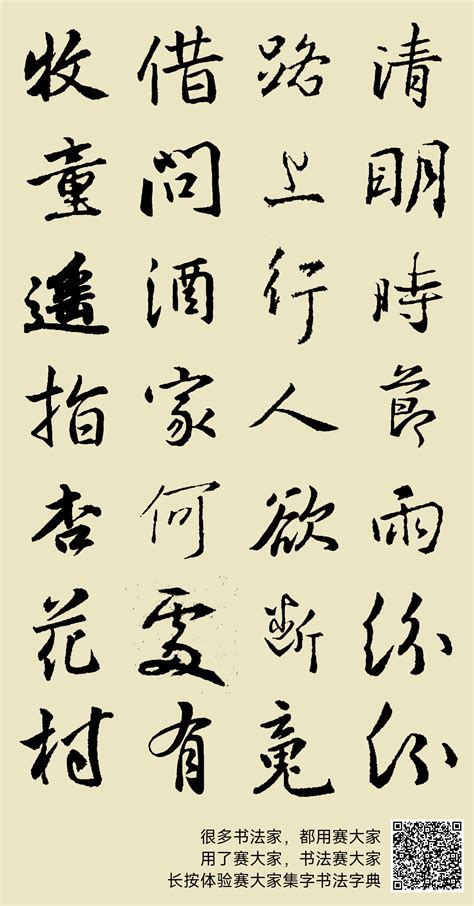 清明時節雨紛紛
路上行人欲断魂
借問酒家何處有
牧童遥指杏花村
很多书法家，都用赛大家
用了赛大家，书法赛大家
长按体验赛大家集字书法字典